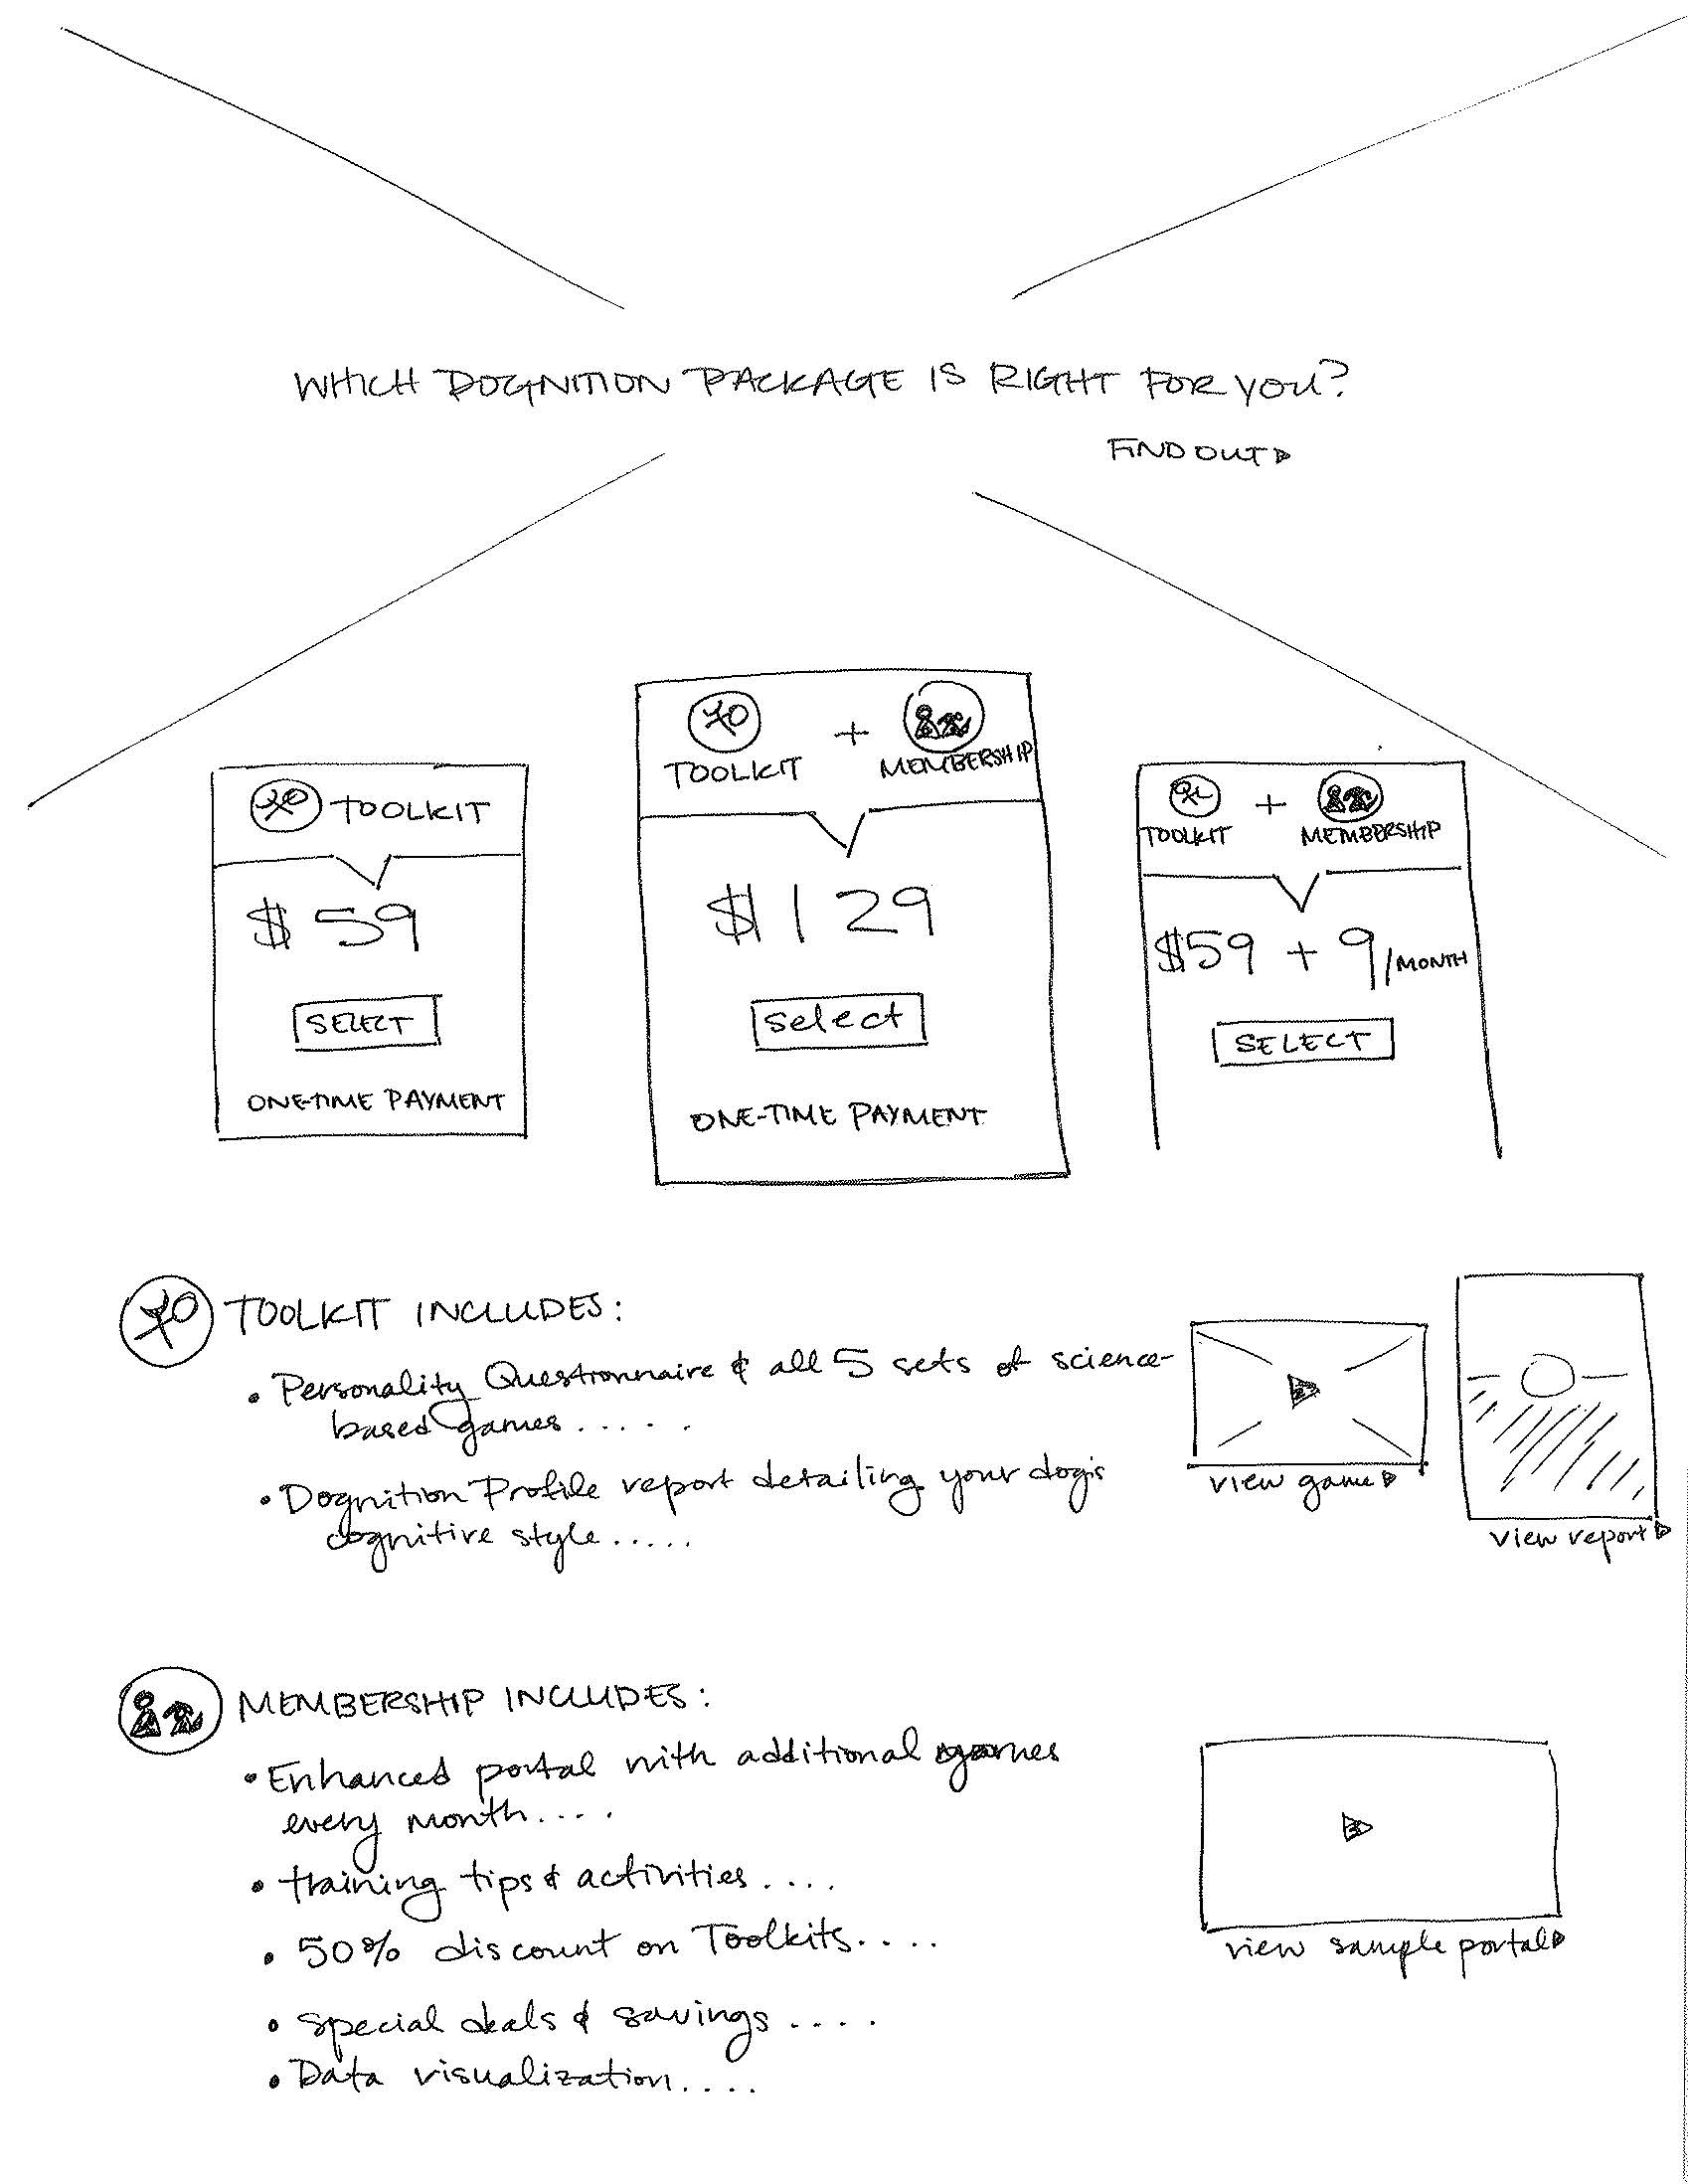 WHICH DOGNITION PACKAGE IS RIGHT FOR YOU?
FIND OUT
TOOLKIT
$59
SELECT
ONE-TIME PAYMENT
TOOLKIT + MEMBERSHIP
$129
select
ONE-TIME PAYMENT
TOOLKIT + MEMBERSHIP
$59 + 9/MONTH
SELECT
TOOLKIT INCLUDES:
• Personality Questionnaire & all 5 sets of science-
based games.....
• Dognition Profile report detailing your dog's
cognitive style.....
view game
view report
MEMBERSHIP INCLUDES:
• Enhanced portal with additional games
every month....
• training tips & activities....
• 50% discount on Toolkits....
• special deals & savings....
• Data visualization....
view sample portal